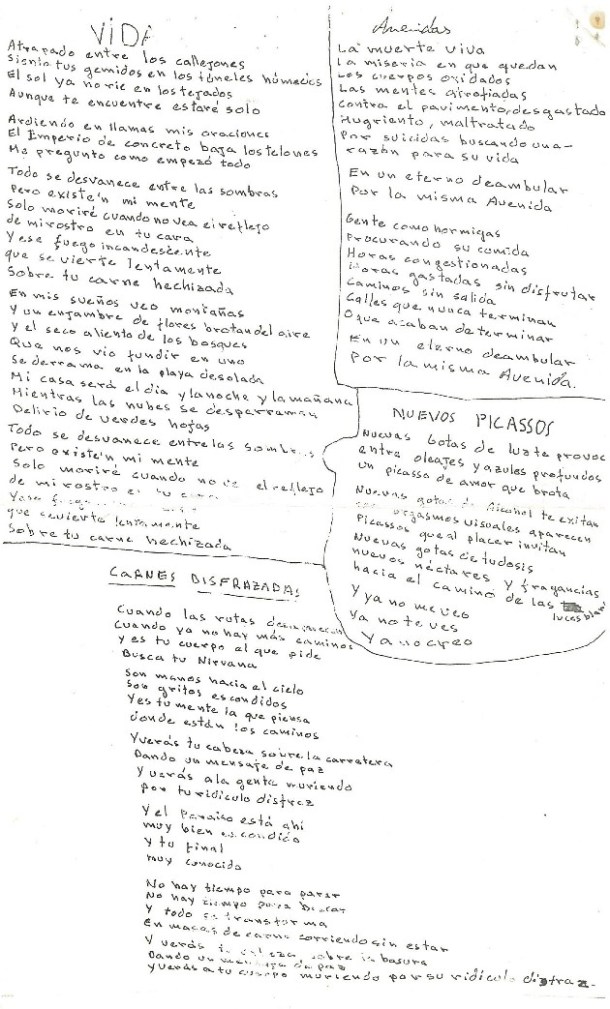 VIDA
Atrapado entre los callejones
Siento tus gemidos en los túneles húmedos
El sol ya no ríe en los tejados
Aunque te encuentre estaré solo
Ardiendo en llamas mis oraciones
El Imperio de concreto baja los telones
Me pregunto como empezó todo
Todo se desvanece entre las sombras
Pero existe'n mi mente
Solo moriré cuando no vea el reflejo
de mi rostro en tu cara
Y ese fuego incandescente
que se vierte lentamente
Sobre tu carne hechizada
En mis sueños veo montañas
Y un enjambre de flores brotan del aire
y el seco aliento de los bosques
Que nos vio fundir en uno
Se derrama en la playa desolada
Mi casa será el día y la noche y la mañana
Mientras las nubes se desparraman
Delirio de verdes hojas
Todo se desvanece entre las sombras
Pero existe'n mi mente
Solo moriré cuando no ve el reflejo
de mi rostro en tu cara
Y ese
que se vierte lentamente
Sobre tu carne hechizada
Avenidas
La muerte viva
La miseria en que quedan
Los cuerpos oxidados
Las mentes atrofiadas
Contra el pavimento, desgastado
Mugriento, maltratado
Por suicidas buscando una
razón para su vida
En un eterno deambular
Por la misma Avenida
Gente como hormigas
Procurando su comida
Horas congestionadas
Horas gastadas sin disfrutar
Caminos sin salida
Calles que nunca terminan
O que acaban de terminar
En un eterno deambular
Por la misma Avenida.
NUEVOS PICASSOS
Nuevas Gotas de luz te provoc
entre oleajes y azules profundos
un picasso de amor que brota
Nuevas gotas de Alcohol te exitan
orgasmos visuales aparecen
Picassos que al placer invitan
Nuevas gotas de tu dosis
nuevos néctares y fragancias
hacia el camino de las
luces
Y ya no me veo
Ya no te ves
Ya no creo
CARNES DISFRAZADAS
Cuando las rutas desaparecen
Cuando ya no hay más caminos
Y es tu cuerpo el que pide
Busca tu Nirvana
Son manos hacia el cielo
Son gritos escondidos
Y es tu mente la que piensa
donde están los caminos
Y verás tu cabeza sobre la carretera
Dando un mensaje de paz
Y verás a la gente muriendo
por tu ridículo disfraz
Y el Paraíso está ahí
muy bien escondido
Y tu final
muy conocido
No hay tiempo para parar
No hay tiempo para buscar
Y todo se transforma
En masas de carne corriendo sin estar
Y verás tu cabeza sobre la basura
Dando un mensaje de paz
Y verás a tu cuerpo muriendo por su ridículo disfraz.